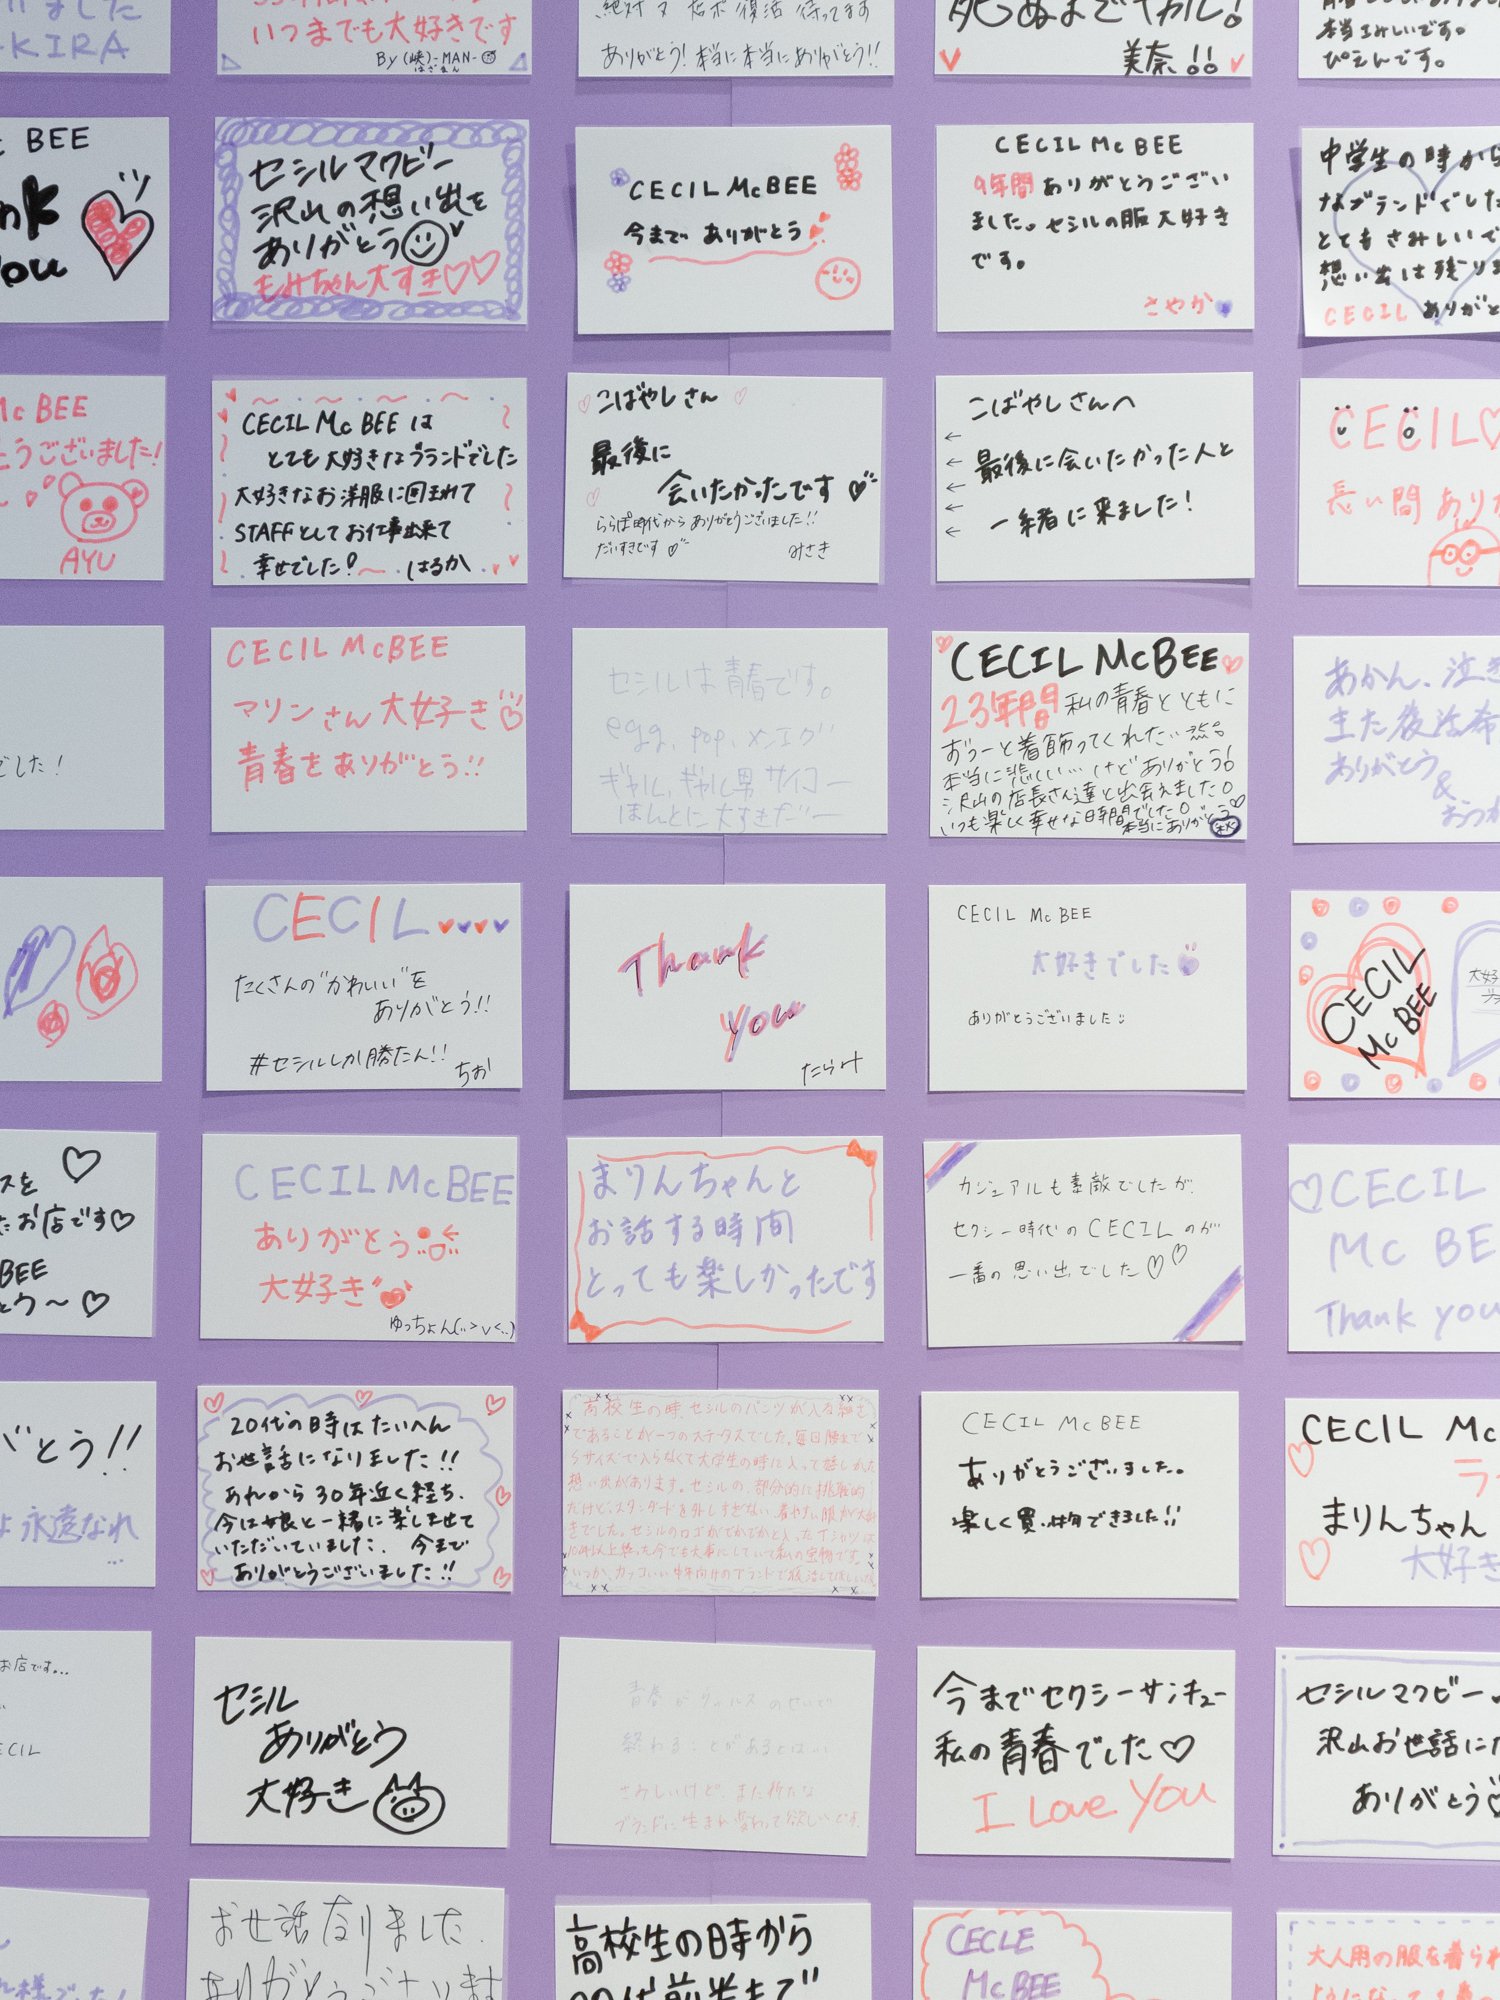 ました
KIRA
いつまでも大好きです
By (峡)-MAN-
はざまん
ありがとう!本当に本当にありがとう!!
死ぬまでギャル!
美奈!!
本当エみしいです。
ぴえんです。
BEE
You
セシルマクビー
沢山の想い出を
ありがとう
もみちゃん大すき♡♡
CECIL McBEE
今まで ありがとう
CECIL McBEE
9年間ありがとうござい
ました。セシルの服大好き
です。
さやか
中学生の時から
なブランドでした
とてもさみしいで
想い出は残りま
CECIL ありがと
Mc BEE
とうございました!
AYU
CECIL Mc BEE は
とても大好きなブランドでした
大好きなお洋服に囲まれて
STAFFとしてお仕事出来て
幸せでした! はるか
こばやしさん
最後に
会いたかったです
ららぽ時代からありがとうございました!!
だいすきです
みさき
こばやしさんへ
← 最後に会いたかった人と
一緒に来ました!
CECIL♡
長い間 あり
でした!
CECIL McBEE
マリンさん大好き
青春をありがとう!!
セシルは青春です。
egg、pop、メンエグ
ギャル、ギャル男 サイコー
ほんとに大すきだー
CECIL McBEE
23年間 私の青春とともに
ずぅーと着飾ってくれた
本当に悲しい…けどありがとう!
沢山の店長さん達と出会えました!
いつも楽しく幸せな時間でした!
本当にありがとう
あかん、泣き
また復活希
ありがとう
&
おつか
CECIL
たくさんの"かわいい"を
ありがとう!!
#セシルしか勝たん!!
ちお
Thank
you
たらみ
CECIL Mc BEE
大好きでした
ありがとうございました
CECIL
Mc BEE
大好き
スを
たお店です♡
BEE
とう〜♡
CECIL McBEE
ありがとう
大好き
ゆっちょん
まりんちゃんと
お話する時間
とっても楽しかったです
カジュアルも素敵でしたが、
セクシー時代のCECILのが
一番の思い出でした♡♡
♡CECIL
MC BE
Thank you
がとう!!
永遠なれ
…
20代の時はたいへん
お世話になりました!!
あれから30年近く経ち、
今は娘と一緒に楽しませて
いただいていました。今まで
ありがとうございました!!
高校生の時、セシルのパンツが入る細さ
であることが一つのステータスでした。毎日履まで
Sサイズで入らなくて大学生の時に入って嬉しかった
想い出があります。セシルの、部分的に挑戦的
だけど、スタンダードを外しすぎない、着やすい服が大好
きでした。セシルのロゴがでかでかと入ったTシャツは
10年以上経った今でも大事にしていて私の宝物です。
いつか、カッコいい中年向けのブランドで復活してほしいな
CECIL McBEE
ありがとうございました。
楽しく買い物できました!!
CECIL Mc
ラ
まりんちゃん
大好き
お店です...
ECIL
セシル
ありがとう
大好き
青春がウィルスのせいで
終わることがあるとは…
さみしいけど、また新たな
ブランドに生まれ変わって欲しいです。
今までセクシーサンキュー
私の青春でした♡
I Love You
セシルマクビー
沢山お世話にな
ありがとう♡
れ様でした!
お世話なりました.
ありがとうございます
高校生の時から
CECLE
McBEE
大人用の服を着られ